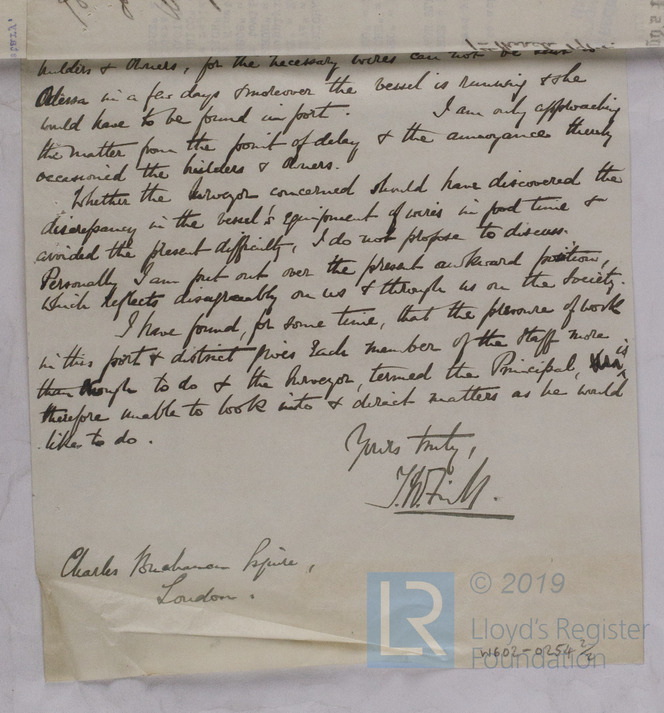 builders & Owners, for the necessary wires can not be
Odessa in a few days & moreover the vessel is running & she
would have to be found in port. I am only approaching
the matter from the point of delay & the annoyance thereby
occasioned the builders & Owners.
Whether the Surveyor concerned should have discovered the
discrepancy in the vessel's equipment of wires in good time &
avoided the present difficulty, I do not propose to discuss.
Personally I am put out over the present awkward position,
which reflects disagreeably on us & through us on the Society.
I have found, for some time, that the pressure of work
in this port & district gives Each member of the Staff more
than Enough to do & the Surveyor, termed the Principal, is
therefore unable to look into & direct matters as he would
like to do.
Yours truly,
Charles Buchanan Esquire,
London.
LR
© 2019
Lloyd's Register
Foundation
W602-0254 2/2